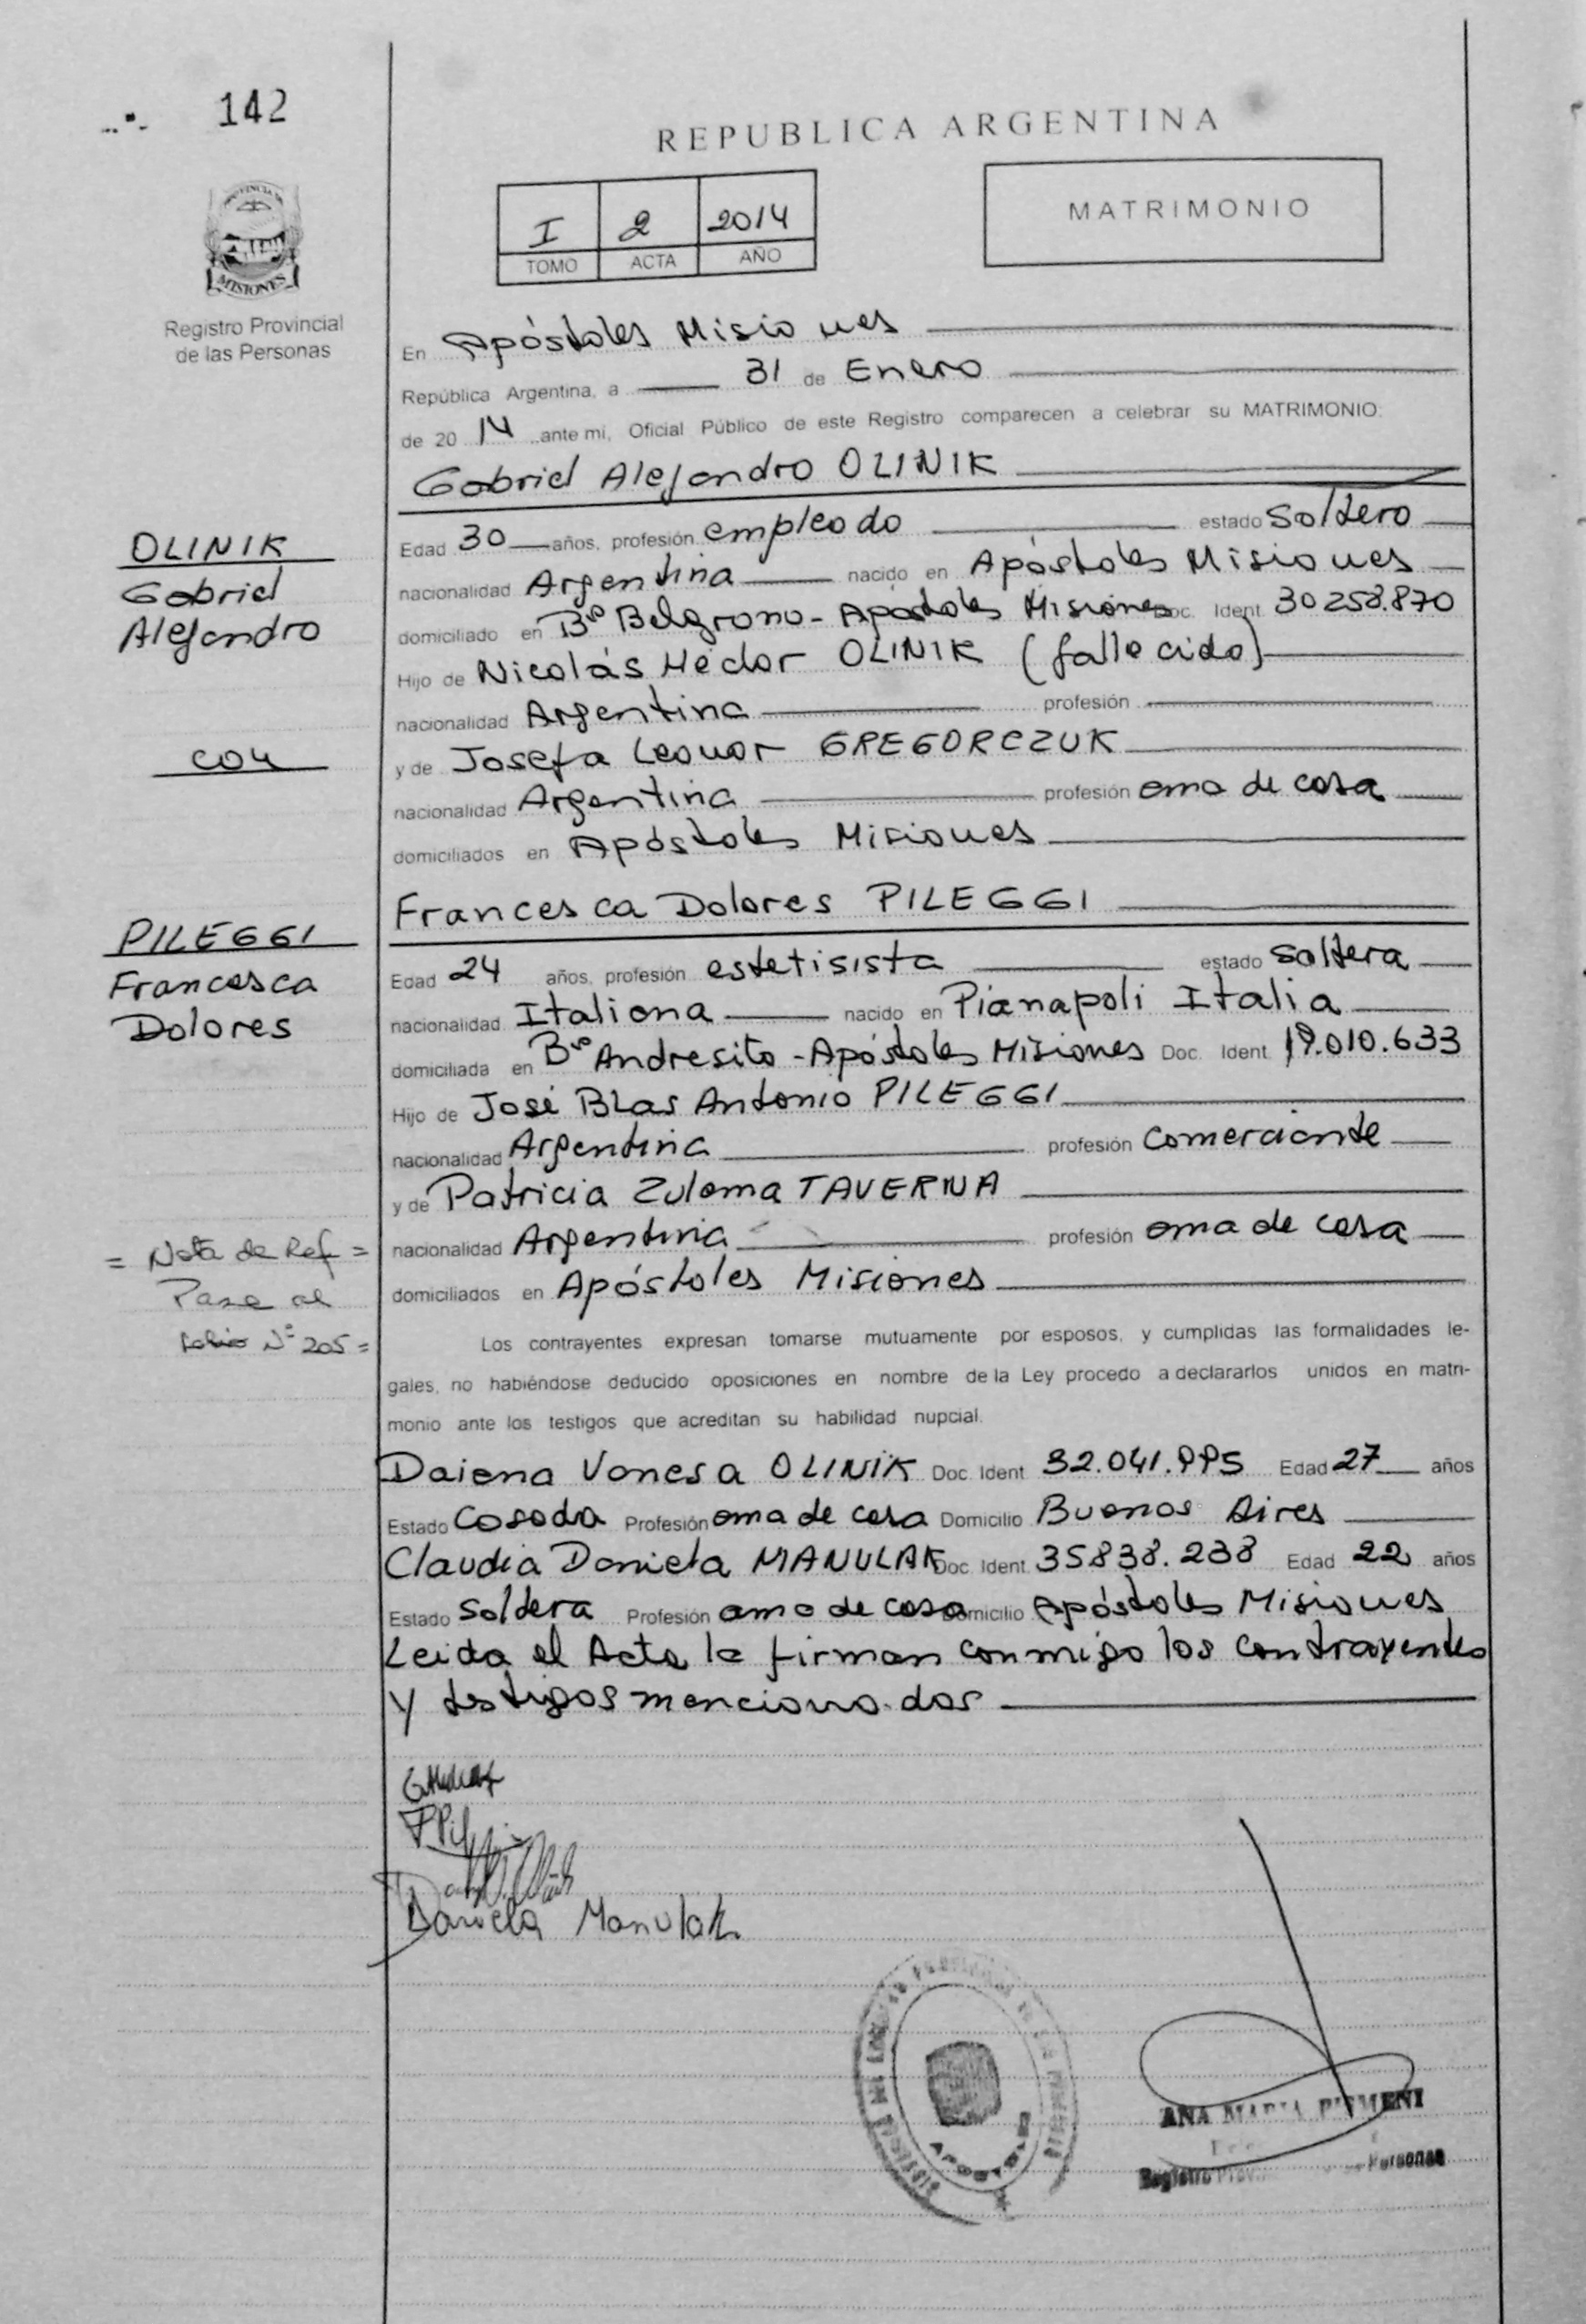 142
REPUBLICA ARGENTINA
I 2 2014
TOMO ACTA AÑO
MATRIMONIO
MISIONES
Registro Provincial
de las Personas
En Apóstoles Misiones
República Argentina, a 31 de Enero
de 20 14 ante mi, Oficial Público de este Registro comparecen a celebrar su MATRIMONIO:
Gabriel Alejandro OLINIK
Edad 30 años, profesión empleado estado Soltero
nacionalidad Argentina nacido en Apóstoles Misiones
domiciliado en Bº Belgrano - Apóstoles Misiones Doc. Ident. 30258.870
Hijo de Nicolás Hector OLINIK (fallecido)
nacionalidad Argentina profesión
y de Josefa Leonor GREGORCZUK
nacionalidad Argentina profesión ama de casa
domiciliados en Apóstoles Misiones
OLINIK
Gabriel
Alejandro
con
PILEGGI
Francesca
Dolores
Francesca Dolores PILEGGI
Edad 24 años, profesión estetisista estado Soltera
nacionalidad Italiana nacido en Pianapoli Italia
domiciliada en Bº Andresito - Apóstoles Misiones Doc. Ident. 19.010.633
Hijo de José Blas Antonio PILEGGI
nacionalidad Argentina profesión Comerciante
y de Patricia Zulema TAVERNA
nacionalidad Argentina profesión ama de casa
domiciliados en Apóstoles Misiones
= Nota de Ref =
Pase al
folio Nº 205 =
Los contrayentes expresan tomarse mutuamente por esposos, y cumplidas las formalidades le-
gales, no habiéndose deducido oposiciones en nombre de la Ley procedo a declararlos unidos en matri-
monio ante los testigos que acreditan su habilidad nupcial.
Daiana Vanesa OLINIK Doc. Ident. 32.041.995 Edad 27 años
Estado Casada Profesión ama de casa Domicilio Buenos Aires
Claudia Daniela MANULAK Doc. Ident. 35838.238 Edad 22 años
Estado Soltera Profesión ama de casa Domicilio Apóstoles Misiones
Leida el Acta la firman conmigo los contrayentes
y testigos mencionados
Daniela Manulak
ANA MARIA
Registro Personas